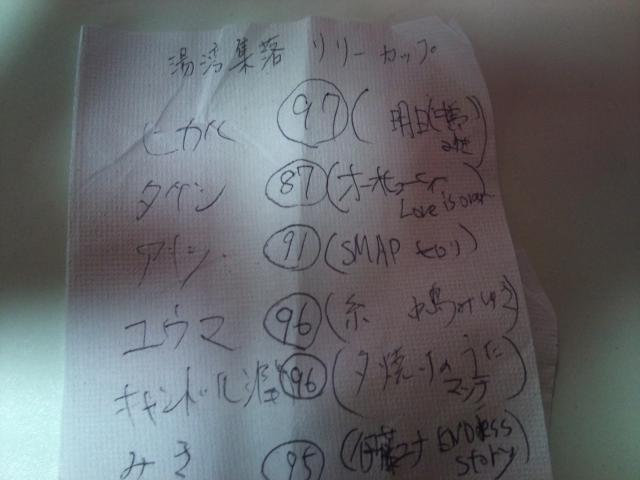 湯湾集落 リリーカップ
ヒカル 97 (明日
タケシ 87 (オーヤン
Love is over)
アキシ 91 (SMAP セロリ)
ユウマ 96 (糸 中島みゆき)
キャンドル 96 (夕焼けのうた
マッチ)
みき 95 (伊藤 ENDless
story)